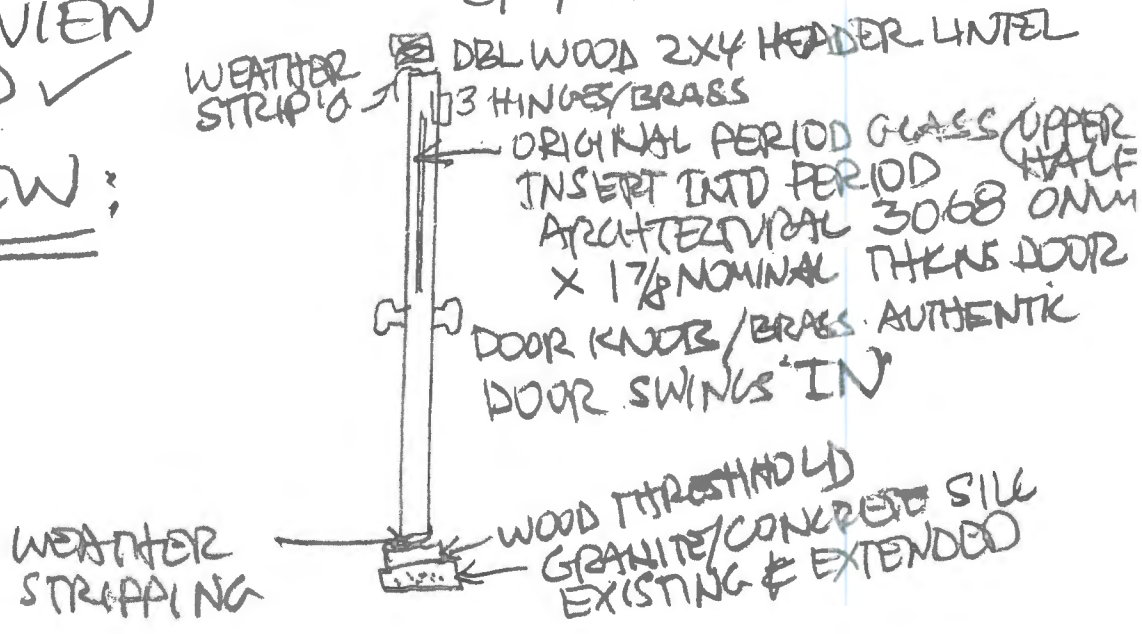 VIEW
WEATHER
STRIP'G
DBL WOOD 2X4 HEADER LINTEL
3 HINGES/BRASS
ORIGINAL PERIOD GLASS (UPPER
HALF
INSERT INTO PERIOD
ARCHITECTURAL 3068 ONLY
X 1 7/8 NOMINAL THKNS DOOR
DOOR KNOB/BRASS AUTHENTIC
DOOR SWINGS "IN"
WOOD THRESHHOLD
GRANITE/CONCRETE SILL
EXISTING & EXTENDED
WEATHER
STRIPPING